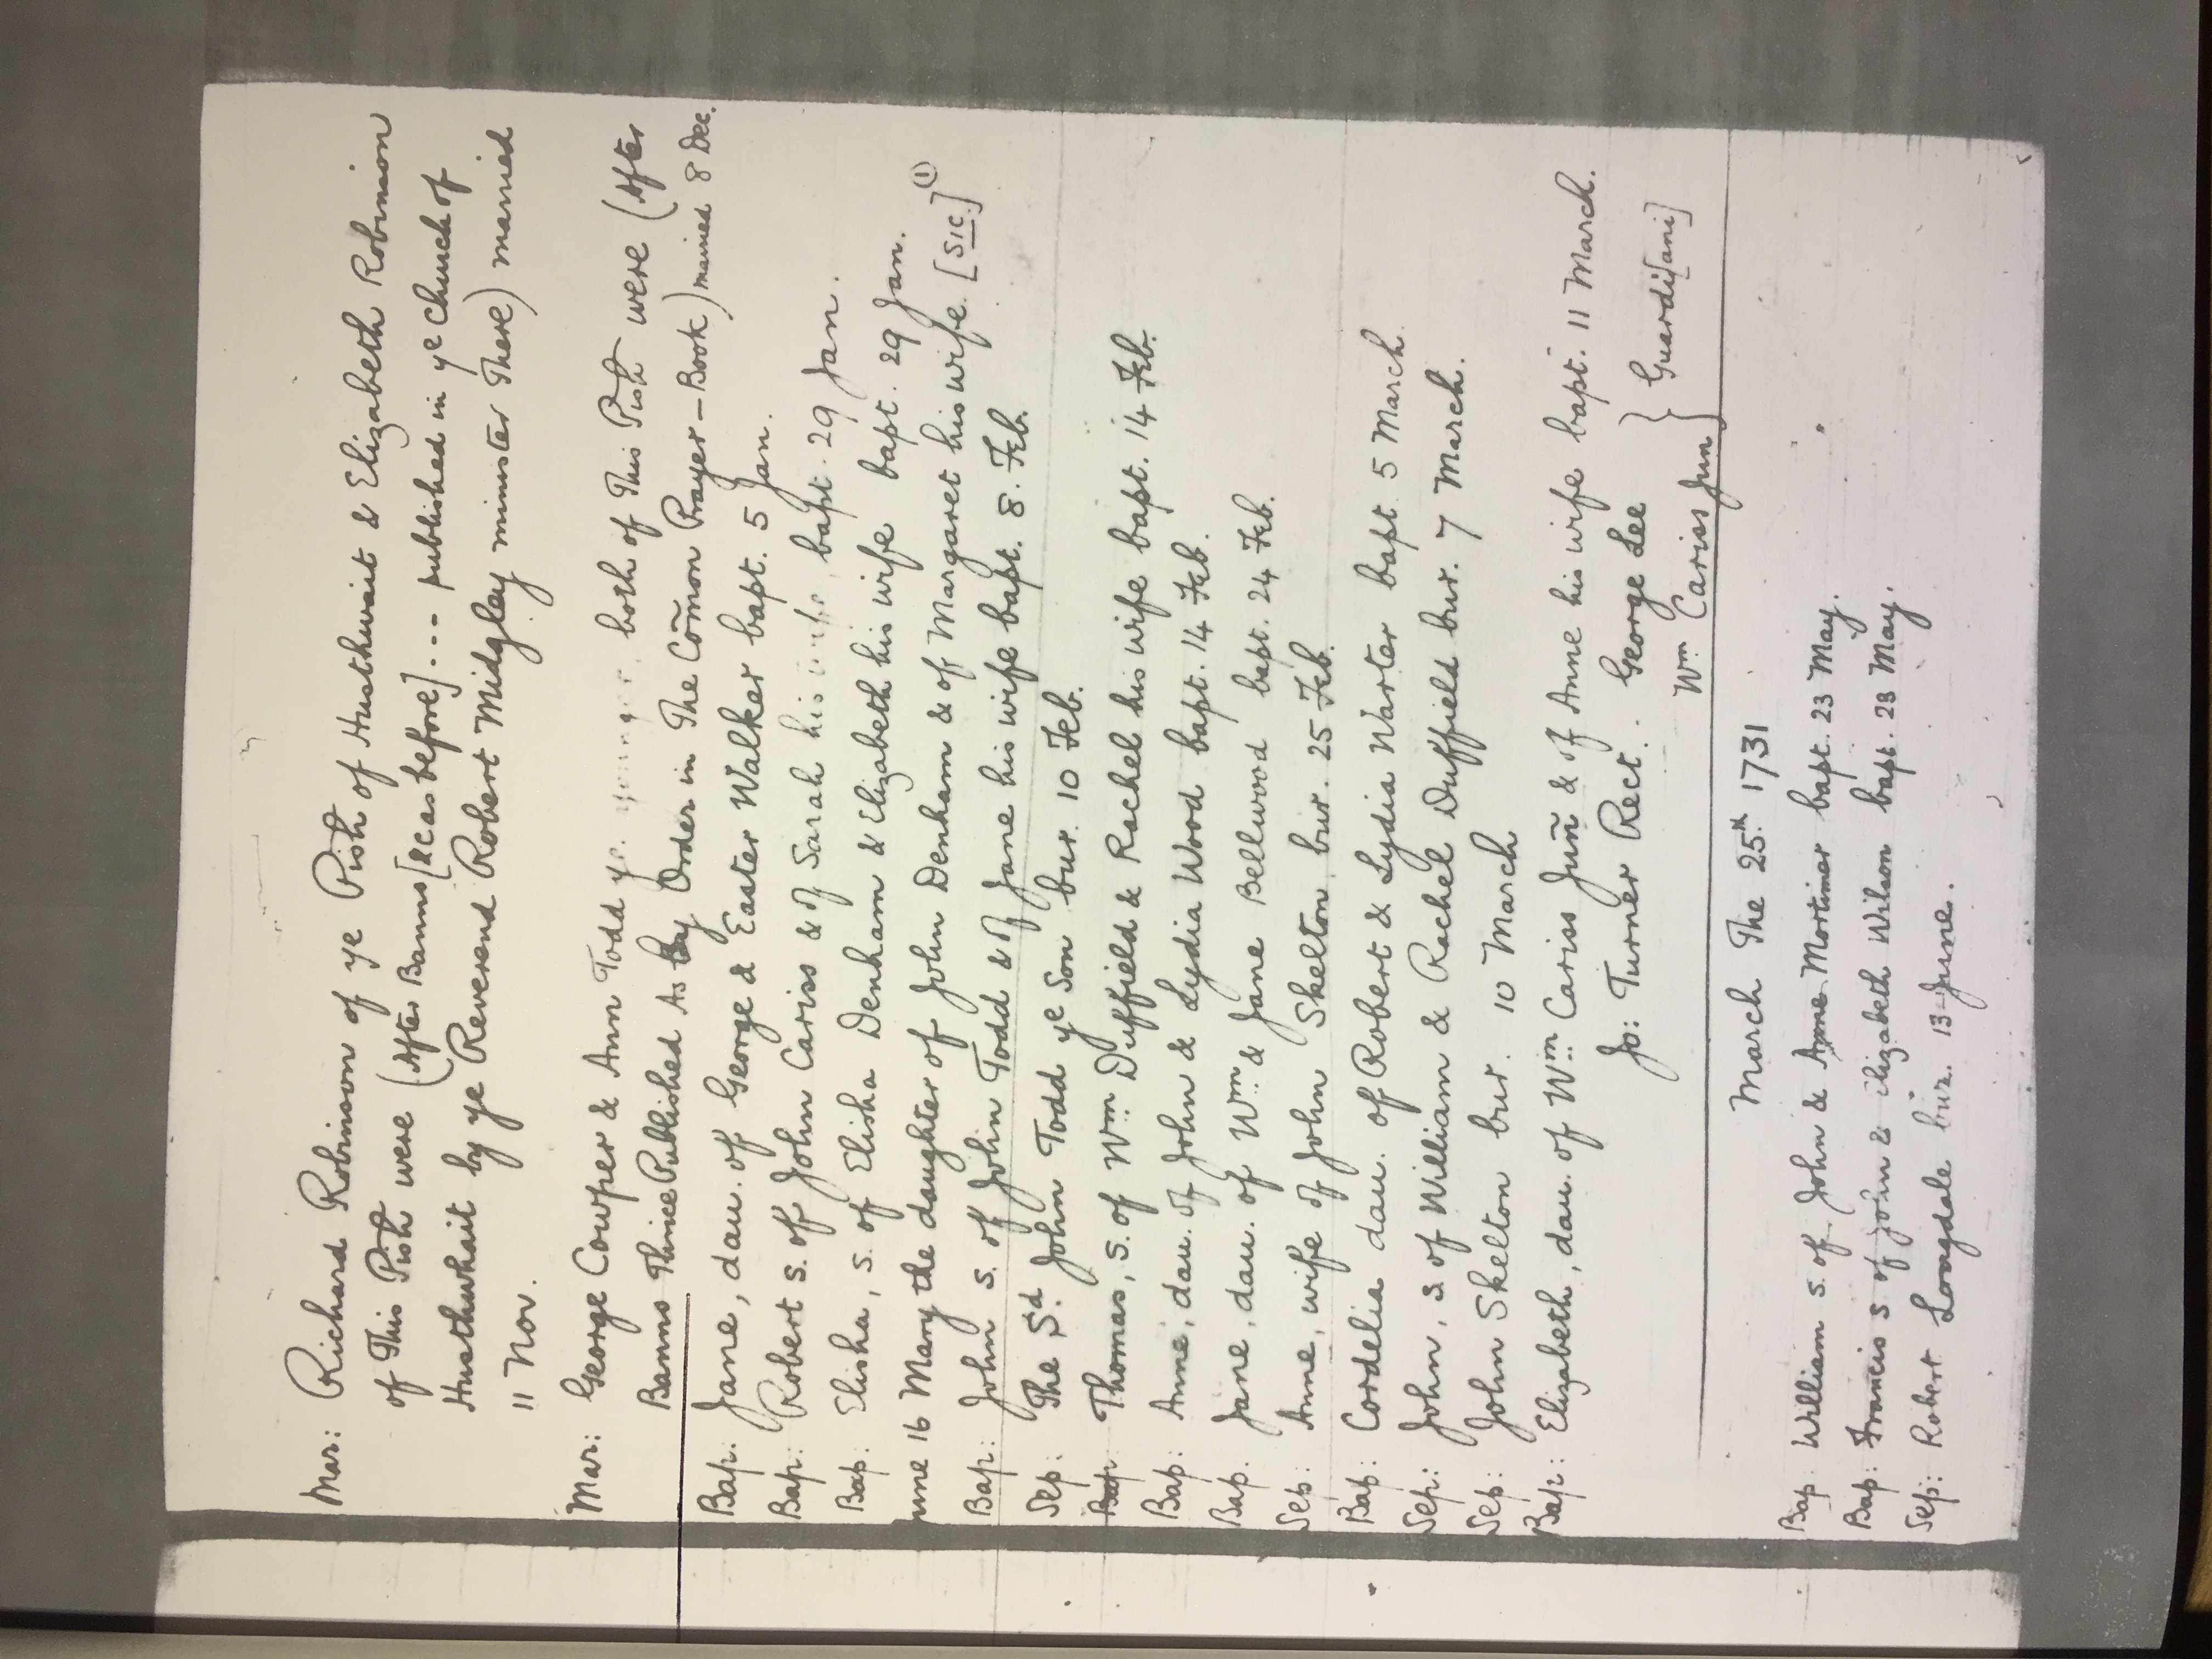 Mar: Richard Robinson of ye Pish of Husthwait & Elizabeth Robinson
of This Pish were (After Banns [&c as before] --- published in ye Church of
Husthwhait by ye Reverend Robert Midgley minister There) married
11 Nov.
Mar: George Cowper & Ann Todd ye. younger, both of This Pish were (After
Banns Thrice Published As by Order in The Com̃on Prayer-Book) married 8 Dec.
Bap: Jane, dau. of George & Easter Walker bapt. 5 Jan.
Bap: Robert s. of John Cariss & of Sarah his wife, bapt. 29 Jan.
Bap: Elisha, s. of Elisha Denham & Elizabeth his wife bapt. 29 Jan.
June 16 Mary the daughter of John Denham & of Margaret his wife. [SIC] (1)
Bap: John s. of John Todd & of Jane his wife bapt. 8. Feb.
Sep: The Sd. John Todd ye Son bur. 10 Feb.
Bap: Thomas, s. of Wm. Duffield & Rachel his wife bapt. 14 Feb.
Bap: Anne, dau. of John & Lydia Wood bapt. 14 Feb.
Bap. Jane, dau. of Wm. & Jane Bellwood bapt. 24 Feb.
Sep: Anne, wife of John Skelton, bur. 25 Feb.
Bap: Cordelia dau. of Robert & Lydia Warter bapt. 5 March
Sep: John, s. of William & Rachel Duffield bur. 7 March.
Sep: John Skelton bur. 10 March
Bap: Elizabeth, dau. of Wm. Cariss Juñ & of Anne his wife bapt. 11 March.
Jo: Turner Rect. George Lee } Guardi[ani]
Wm. Cariss Jun }
March The 25th 1731
Bap: William s. of John & Anne Mortimer bapt. 23 May.
Bap: Francis s. of John & Elizabeth Wilson bapt. 23 May.
Sep: Robert Longdale bur. 13 June.